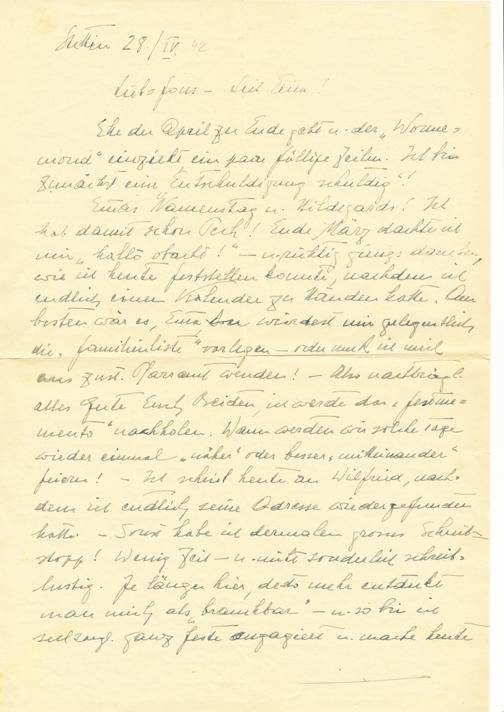 Stettin 28./IV. 42
Liebs Hans – Lieb Erna!
Ehe der April zu Ende geht u. der „Wonne=
mond" einzieht ein paar fällige Zeilen. Ich bin
zunächst eine Entschuldigung schuldig"!
Ernas Namenstag u. Hildegards! Ich
hab damit schon Pech! Ende März dachte ich
mir „halto obacht!" – u. richtig gings daneben,
wie ich heute feststellen konnte, nachdem ich
endlich einen Kalender zu Handen hatte. Am
besten wär es, Erna würdest mir gelegentlich
die „Familienliste" vorlegen – oder muß ich mich
ans zust. Pfarramt wenden! – Also nachträgl.
alles Gute Euch Beiden, ich werde das „
mento" nachholen. Wann werden wir solche Tage
wieder einmal „näher" oder besser „miteinander"
feiern! – Ich schrieb heute an Wilfried, nach=
dem ich endlich seine Adresse wiedergefunden
hatte. – Sonst habe ich dermalen grosses Schreib=
stopp! Wenig Zeit – u. nicht sonderlich schreib=
lustig. Je länger hier, desto mehr entdeckt
man mich als „brauchbar" – u. so bin ich
seelsorgl. ganz feste engagiert u. mache heute